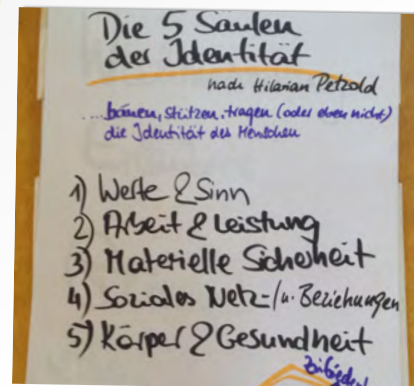 Die 5 Säulen
der Identität
nach Hilarion Petzold
stützen, tragen (oder eben nicht)
die Identität des Menschen
1) Werte & Sinn
2) Arbeit & Leistung
3) Materielle Sicherheit
4) Soziales Netz-/u. Beziehungen
5) Körper & Gesundheit